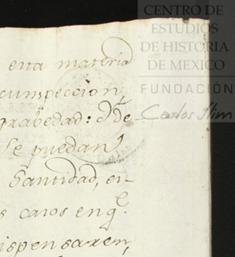 CENTRO DE
ESTUDIOS
DE HISTORIA
DE MEXICO
FUNDACIÓN
Carlos Slim
esta materia
cunspeccion,
grabedad: y de-
se puedan
Santidad, en-
s casos en q.^e
ispensaren,